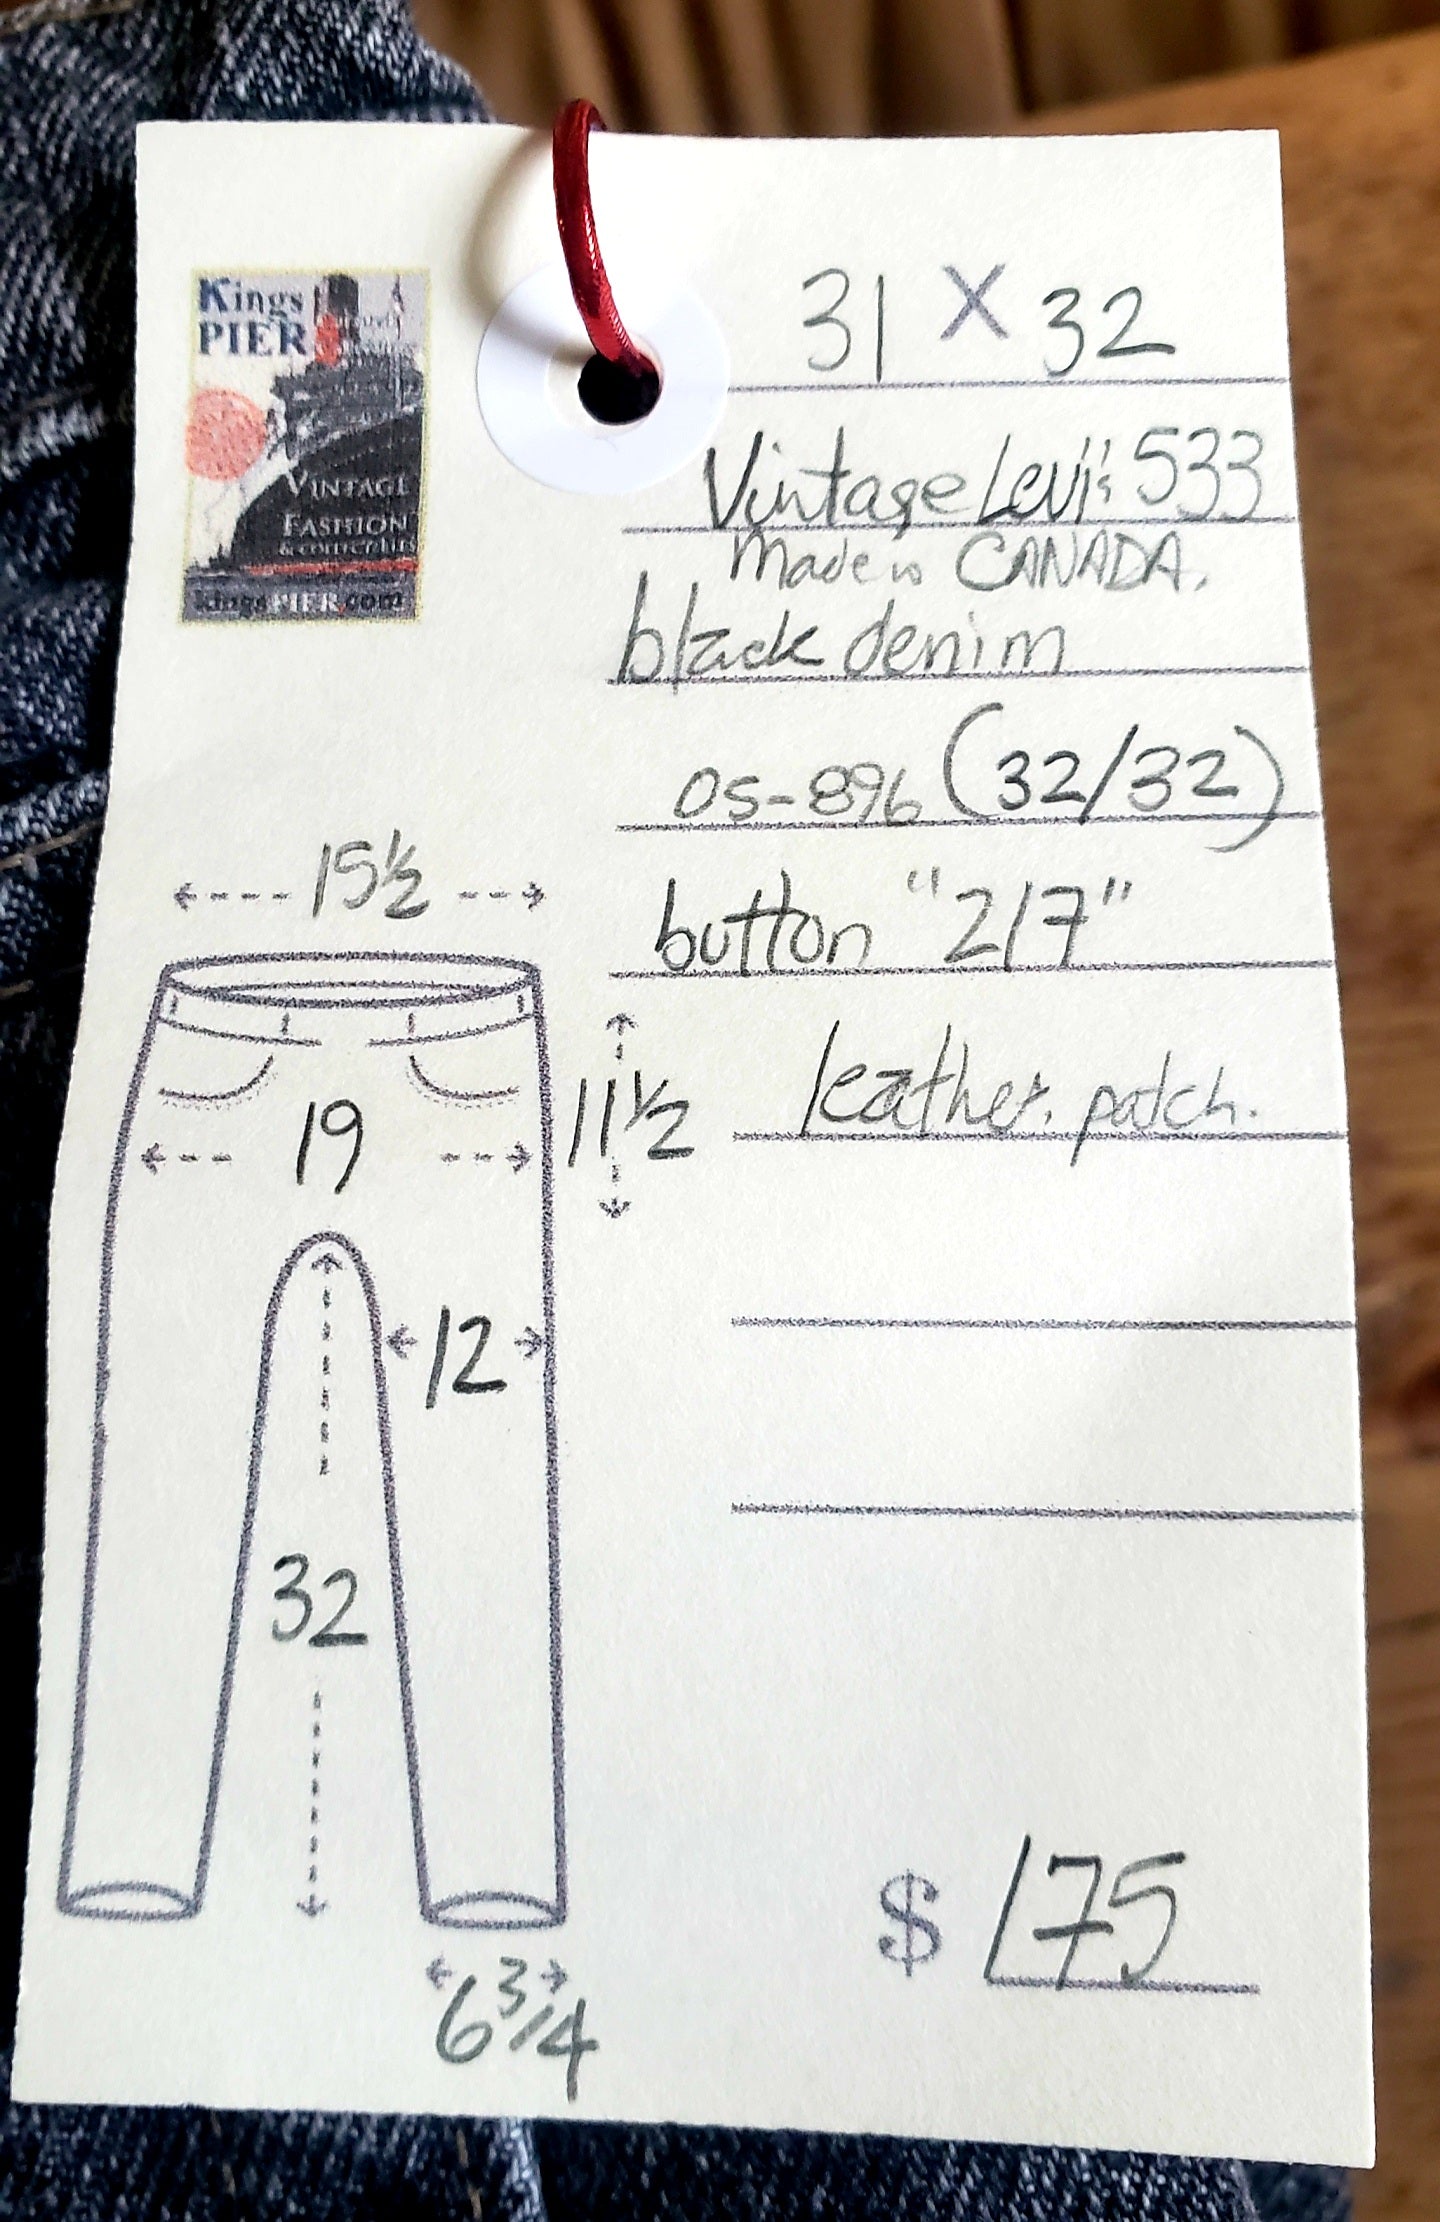 Kings
PIER
VINTAGE
FASHION
& COLLECTIBLES
kingsPIER.com
31 X 32
Vintage Levi's 533
made in CANADA.
black denim
OS-896 (32/32)
button "217"
leather patch.
15 1/2
19
11 1/2
12
32
6 3/4
$ 175